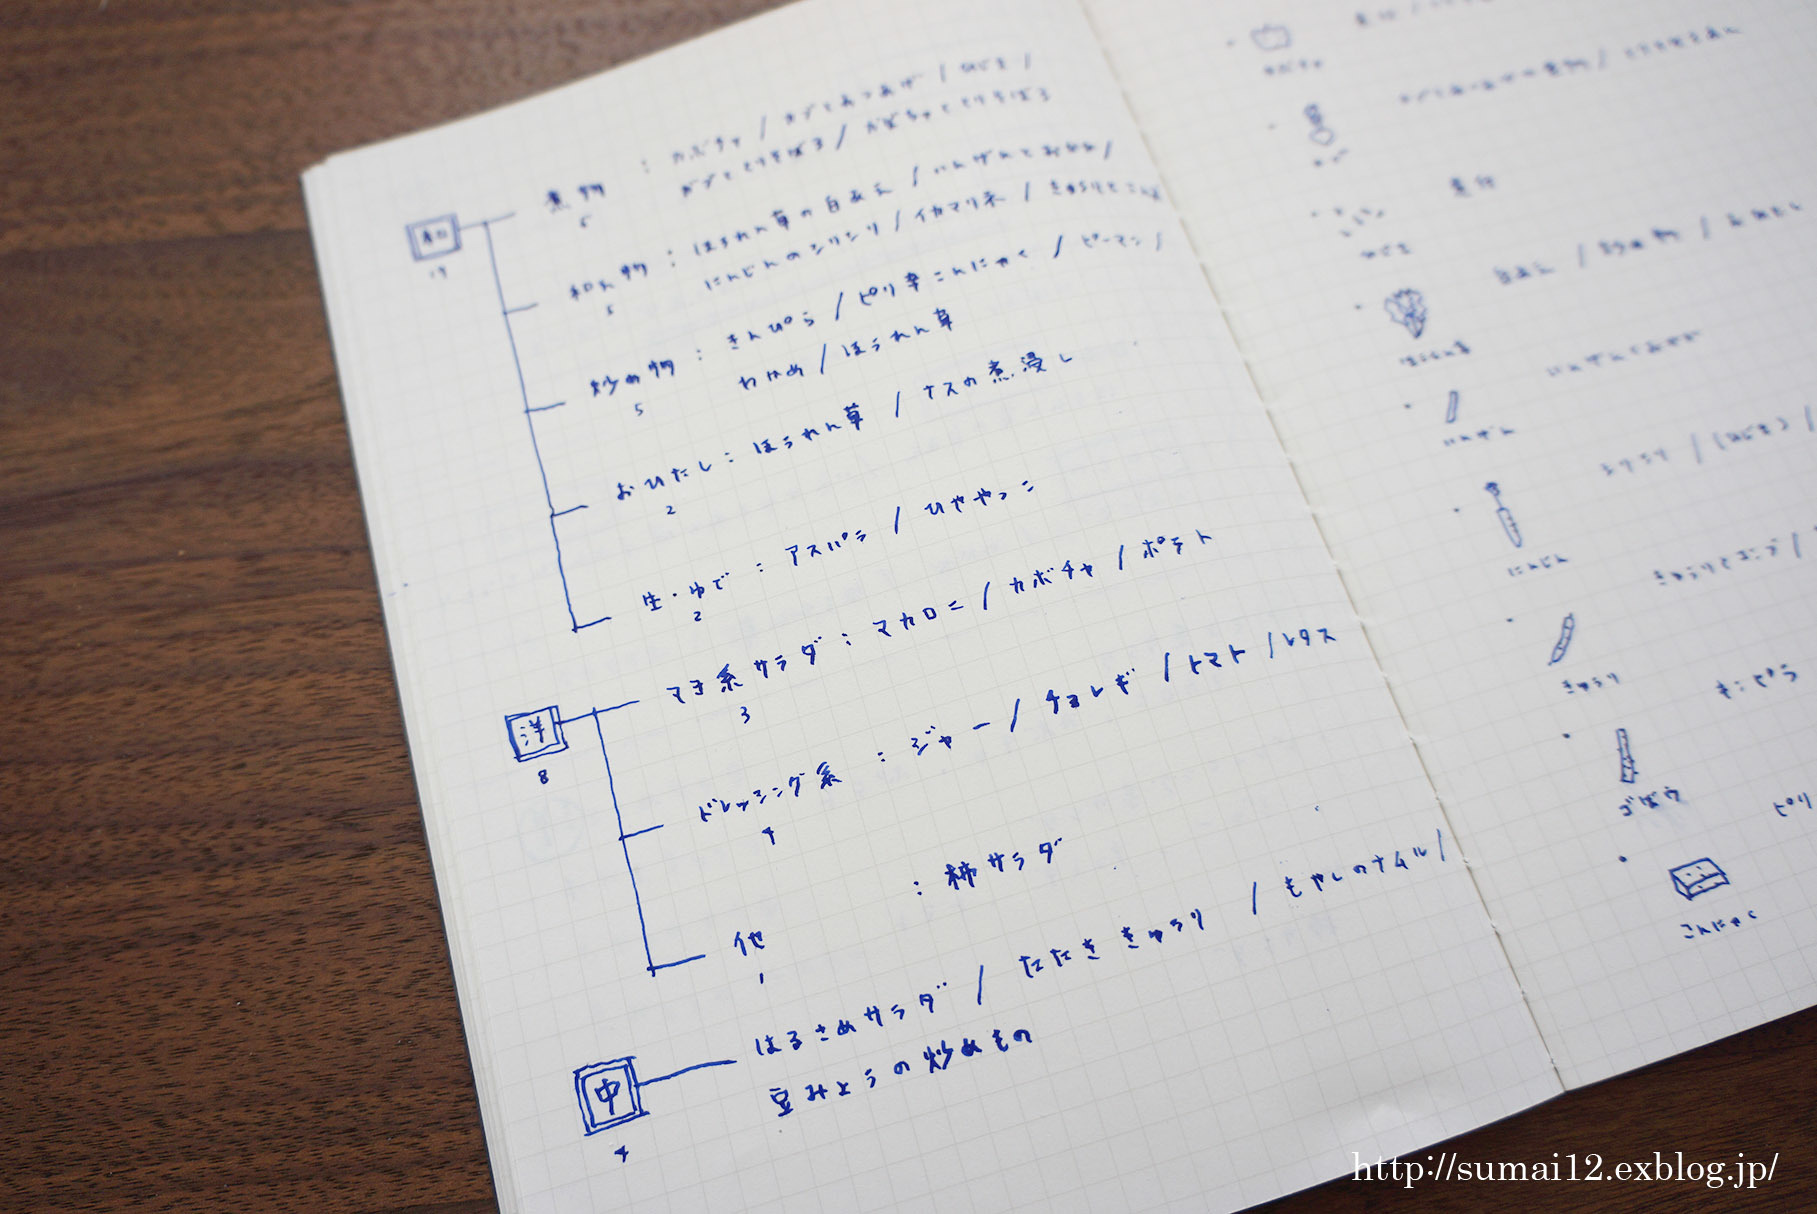 和
19
煮物 : カボチャ / カブとあつあげ / ひじき /
5
カブととりそぼろ / かぼちゃととりそぼろ
和え物 : ほうれん草の白あえ / いんげんとおかか /
5
にんじんのシリシリ / イカマリネ / きゅうりと
炒め物 : きんぴら / ピリ辛こんにゃく / ピーマン /
5
わかめ / ほうれん草
おひたし : ほうれん草 / ナスの煮浸し
2
生・ゆで : アスパラ / ひややっこ
2
洋
8
マヨ系サラダ : マカロニ / カボチャ / ポテト
3
ドレッシング系 : ジャー / チョレギ / トマト / レタス
4
他 : 柿サラダ
1
中
4
はるさめサラダ / たたききゅうり / もやしのナムル /
豆みょうの炒めもの
カボチャ
カブ
煮物
ひじき
白あえ / 炒め物 / おひたし
ほうれん草
いんげんとおかか
いんげん
シリシリ / (ひじき) /
にんじん
きゅうり
きんぴら
ゴボウ
ピリ
こんにゃく
http://sumai12.exblog.jp/